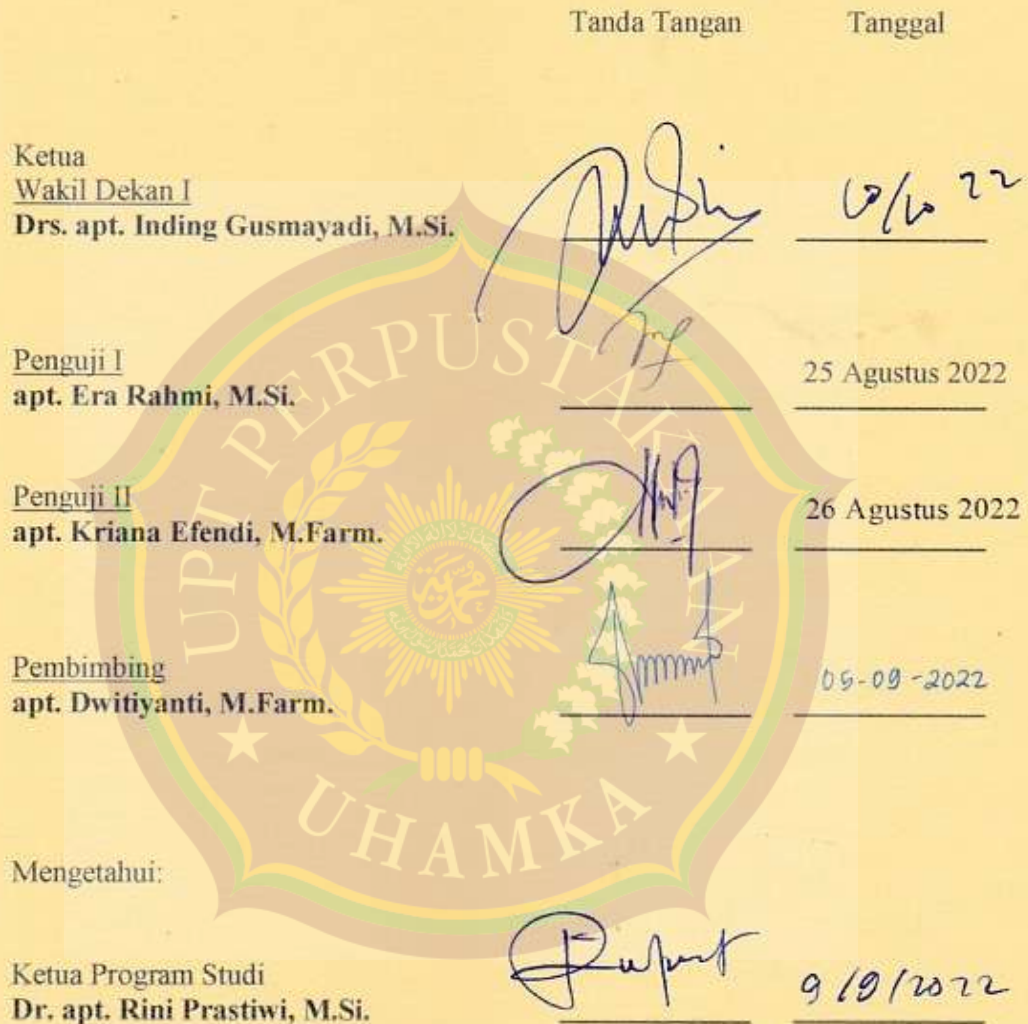 Tanda Tangan Tanggal
Ketua
Wakil Dekan I
Drs. apt. Inding Gusmayadi, M.Si.
10/10 22
Penguji I
apt. Era Rahmi, M.Si.
25 Agustus 2022
Penguji II
apt. Kriana Efendi, M.Farm.
26 Agustus 2022
Pembimbing
apt. Dwitiyanti, M.Farm.
05-09-2022
Mengetahui:
Ketua Program Studi
Dr. apt. Rini Prastiwi, M.Si.
9/9/2022
UPT PERPUSTAKAAN
UHAMKA